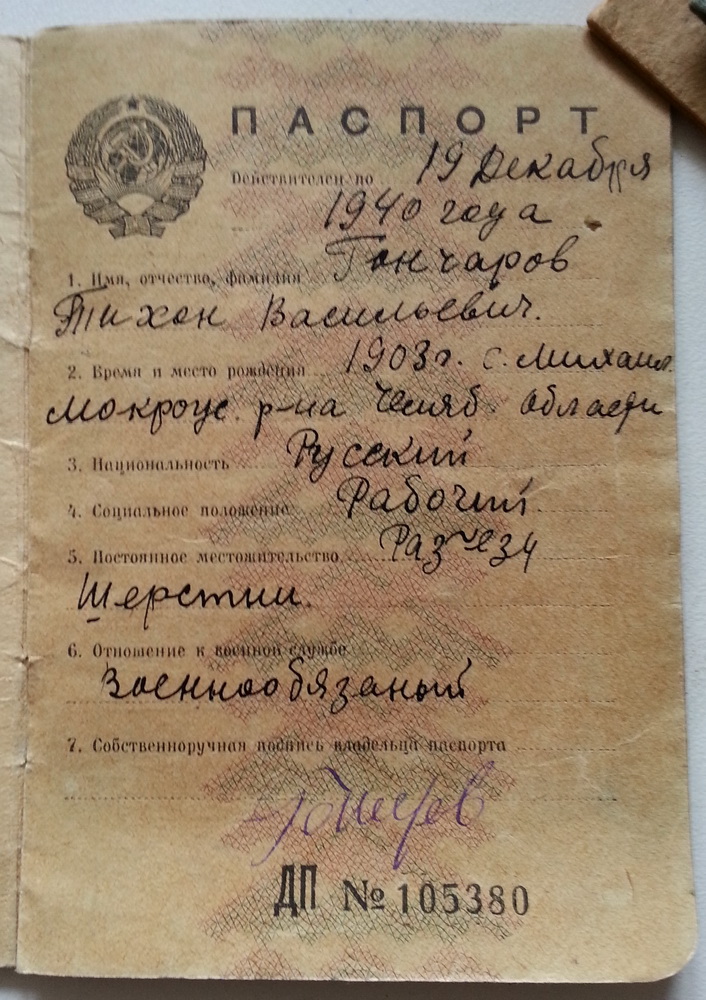 ПАСПОРТ
Действителен по 19 Декабря
1940 года
1. Имя, отчество, фамилия Гончаров
Тихон Васильевич.
2. Время и место рождения 1903 г. с. Михаил.
Мокроус. р-на Челяб. области
3. Национальность Русский
4. Социальное положение Рабочий.
5. Постоянное местожительство Разъезд
Шерстни.
6. Отношение к военной службе
Военнообязаный
7. Собственноручная подпись владельца паспорта
ДП № 105380